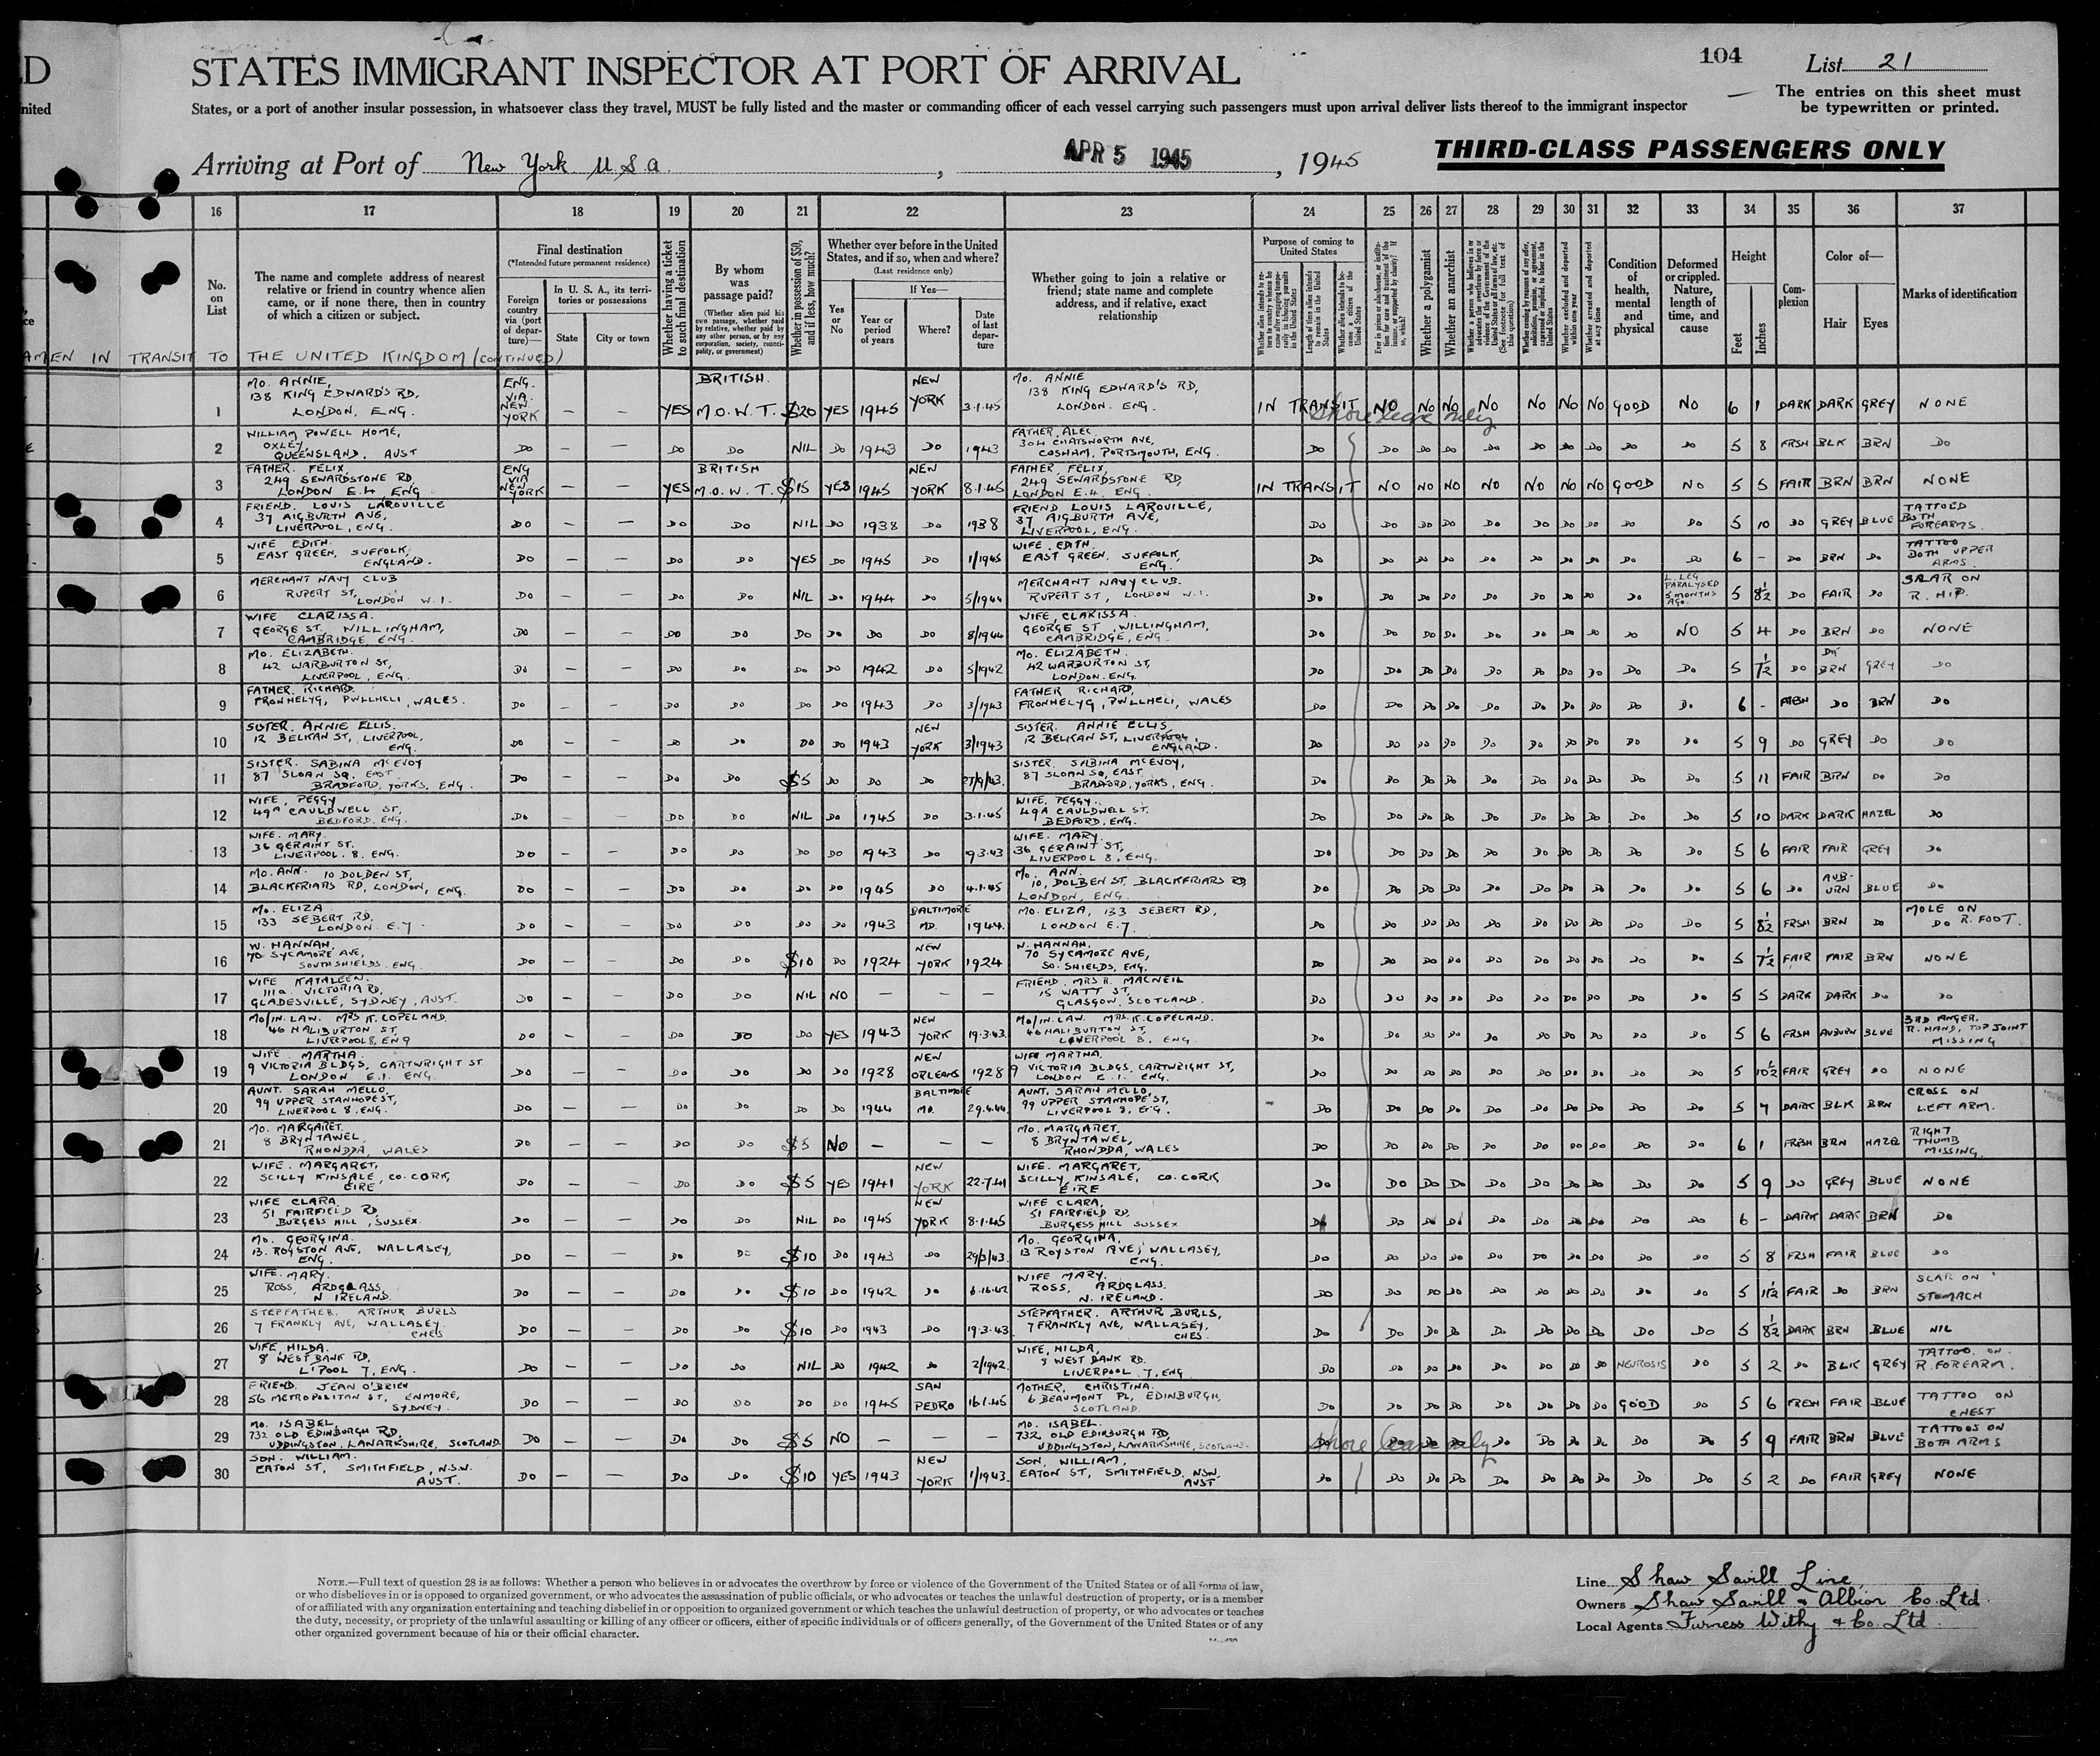 D
STATES IMMIGRANT INSPECTOR AT PORT OF ARRIVAL
104
List 21
nited
States, or a port of another insular possession, in whatsoever class they travel, MUST be fully listed and the master or commanding officer of each vessel carrying such passengers must upon arrival deliver lists thereof to the immigrant inspector
The entries on this sheet must
be typewritten or printed.
Arriving at Port of New York U.S.A. , APR 5 1945 , 1945
THIRD-CLASS PASSENGERS ONLY
16 17 18 19 20 21 22 23 24 25 26 27 28 29 30 31 32 33 34 35 36 37
No. on List
The name and complete address of nearest relative or friend in country whence alien came, or if none there, then in country of which a citizen or subject.
Final destination
(*Intended future permanent residence)
Foreign country via (port of departure)—
In U. S. A., its territories or possessions
State
City or town
Whether having a ticket to such final destination
By whom was passage paid?
(Whether alien paid his own passage, whether paid by relative, whether paid by any other person, or by any corporation, society, municipality, or government)
Whether in possession of $50, and if less, how much?
Whether ever before in the United States, and if so, when and where?
(Last residence only)
Yes or No
If Yes—
Year or period of years
Where?
Date of last departure
Whether going to join a relative or friend; state name and complete address, and if relative, exact relationship
Purpose of coming to United States
Whether a polygamist
Whether an anarchist
Condition of health, mental and physical
Deformed or crippled. Nature, length of time, and cause
Height
Feet
Inches
Complexion
Color of—
Hair
Eyes
Marks of identification
AMEN IN TRANSIT TO THE UNITED KINGDOM (CONTINUED)
1 MO. ANNIE, 138 KING EDWARD'S RD, LONDON, ENG. ENG. VIA NEW YORK — — YES BRITISH M.O.W.T. $20 YES 1945 NEW YORK 3.1.45 MO. ANNIE 138 KING EDWARD'S RD, LONDON. ENG. IN TRANSIT shore leave only NO NO NO NO NO NO NO GOOD NO 6 1 DARK DARK GREY NONE
2 WILLIAM POWELL HOME, OXLEY, QUEENSLAND, AUST DO — DO DO NIL DO 1943 DO 1943 FATHER, ALEC 304 CHATSWORTH AVE, COSHAM, PORTSMOUTH, ENG. DO DO DO DO DO DO DO DO DO DO 5 8 FRSH BLK BRN DO
3 FATHER. FELIX, 249 SEWARDSTONE RD, LONDON E.4, ENG ENG VIA NEW YORK — — YES BRITISH M.O.W.T. $15 YES 1945 NEW YORK 8.1.45 FATHER. FELIX, 249 SEWARDSTONE RD, LONDON E.4. ENG. IN TRANSIT NO NO NO NO NO NO NO GOOD NO 5 5 FAIR BRN BRN NONE
4 FRIEND. LOUIS LAROUILLE 37 AIGBURTH AVE, LIVERPOOL, ENG. DO — — DO DO NIL DO 1938 DO 1938 FRIEND LOUIS LAROUILLE, 37 AIGBURTH AVE, LIVERPOOL, ENG. DO DO DO DO DO DO DO DO DO DO 5 10 DO GREY BLUE TATTOED BOTH FOREARMS.
5 WIFE EDITH. EAST GREEN, SUFFOLK, ENGLAND. DO — — DO DO YES DO 1945 DO 1/1945 WIFE. EDITH. EAST GREEN, SUFFOLK, ENG. DO DO DO DO DO DO DO DO DO DO 6 - DO BRN DO TATTOO BOTH UPPER ARMS.
6 MERCHANT NAVY CLUB RUPERT ST, LONDON W.1. DO — — DO DO NIL DO 1944 DO 5/1944 MERCHANT NAVY CLUB. RUPERT ST, LONDON W.1. DO DO DO DO DO DO DO DO DO L. LEG PARALYSED 5 MONTHS AGO. 5 8½ DO FAIR DO SCAR ON R. HIP.
7 WIFE CLARISSA. GEORGE ST. WILLINGHAM, CAMBRIDGE ENG. DO — — DO DO DO DO DO DO 8/1944 WIFE, CLARISSA. GEORGE ST, WILLINGHAM, CAMBRIDGE, ENG. DO DO DO DO DO DO DO DO DO NO 5 4 DO BRN DO NONE
8 MO. ELIZABETH. 42 WARBURTON ST, LIVERPOOL, ENG. DO — — DO DO DO DO 1942 DO 5/1942 MO. ELIZABETH. 42 WARBURTON ST, LONDON. ENG. DO DO DO DO DO DO DO DO DO DO 5 7½ DO DK BRN GREY DO
9 FATHER. RICHARD. FRONHELYG, PWLLHELI, WALES. DO — — DO DO DO DO 1943 DO 3/1943 FATHER RICHARD, FRONHELYG, PWLLHELI, WALES DO DO DO DO DO DO DO DO DO DO 6 - FRESH DO BRN DO
10 SISTER. ANNIE ELLIS. 12 BELKAN ST, LIVERPOOL, ENG. DO — — DO DO DO DO 1943 NEW YORK 3/1943 SISTER. ANNIE ELLIS, 12 BELKAN ST, LIVERPOOL, ENGLAND. DO DO DO DO DO DO DO DO DO DO 5 9 DO GREY DO DO
11 SISTER. SABINA McEVOY 87 SLOAN SQ. EAST BRADFORD, YORKS, ENG. DO — — DO DO $5 DO DO DO 27/9/43. SISTER. SABINA McEVOY, 87 SLOAN SQ, EAST BRADFORD, YORKS, ENG. DO DO DO DO DO DO DO DO DO DO 5 11 FAIR BRN DO DO
12 WIFE. PEGGY 49A CAULDWELL ST, BEDFORD. ENG. DO — — DO DO NIL DO 1945 DO 3.1.45 WIFE. PEGGY. 49A CAULDWELL ST. BEDFORD, ENG. DO DO DO DO DO DO DO DO DO DO 5 10 DARK DARK HAZEL DO
13 WIFE. MARY. 36 GERAINT ST. LIVERPOOL. 8. ENG. DO — — DO DO DO DO 1943 DO 19.3.43 WIFE. MARY. 36 GERAINT ST, LIVERPOOL 8, ENG. DO DO DO DO DO DO DO DO DO DO 5 6 FAIR FAIR GREY DO
14 MO. ANN. 10 DOLBEN ST, BLACKFRIARS RD, LONDON, ENG. DO — — DO DO DO DO 1945 DO 4.1.45 MO. ANN. 10, DOLBEN ST, BLACKFRIARS RD, LONDON, ENG. DO DO DO DO DO DO DO DO DO DO 5 6 DO AUB-URN BLUE DO
15 MO. ELIZA 133 SEBERT RD. LONDON E.7. DO — — DO DO DO DO 1943 BALTIMORE MD. 1944. MO. ELIZA, 133 SEBERT RD, LONDON E.7. DO DO DO DO DO DO DO DO DO DO 5 8½ FRSH BRN DO MOLE ON DO R. FOOT.
16 W. HANNAH, 70 SYCAMORE AVE, SOUTH SHIELDS. ENG. DO — — DO DO $10 DO 1924 NEW YORK 1924 W. HANNAH, 70 SYCAMORE AVE, SO. SHIELDS, ENG. DO DO DO DO DO DO DO DO DO DO 5 7½ FAIR FAIR BRN NONE
17 WIFE KATALEEN. 111a. VICTORIA RD, GLADESVILLE, SYDNEY, AUST. DO — — DO DO NIL NO — — — FRIEND. MRS R. MACNEIL 15 WATT ST, GLASGOW, SCOTLAND. DO DO DO DO DO DO DO DO DO DO 5 5 DARK DARK DO DO
18 MO/IN.LAW. MRS K. COPELAND. 46 HALIBURTON ST, LIVERPOOL 8, ENG DO — — DO DO DO YES 1943 NEW YORK 19.3.43. MO/IN.LAW. MRS. K. COPELAND. 46 HALIBURTON ST, LIVERPOOL 8, ENG. DO DO DO DO DO DO DO DO DO DO 5 6 FRSH AUBURN BLUE 3RD FINGER. R. HAND, TOP JOINT MISSING
19 WIFE. MARTHA. 9 VICTORIA BLDGS, CARTWRIGHT ST LONDON E.1. ENG. DO — — DO DO DO DO 1928 NEW ORLEANS 1928 WIFE MARTHA. 9 VICTORIA BLDGS, CARTWRIGHT ST, LONDON E.1. ENG. DO DO DO DO DO DO DO DO DO DO 5 10½ FAIR GREY DO NONE
20 AUNT. SARAH MELLO. 99 UPPER STANHOPE ST, LIVERPOOL 8. ENG. DO — — DO DO DO DO 1944 BALTIMORE MD. 29.4.44. AUNT. SARAH MELLO, 99 UPPER STANHOPE ST, LIVERPOOL 8, ENG. DO DO DO DO DO DO DO DO DO DO 5 7 DARK BLK BRN CROSS ON LEFT ARM.
21 MO. MARGARET. 8 BRYNTAWEL, RHONDDA, WALES DO — — DO DO $5 NO — — — MO. MARGARET, 8 BRYNTAWEL, RHONDDA, WALES DO DO DO DO DO DO DO DO DO DO 6 1 FRESH BRN HAZEL RIGHT THUMB MISSING.
22 WIFE. MARGARET, SCILLY KINSALE, CO. CORK, EIRE DO — — DO DO $5 YES 1941 NEW YORK 22.7.41 WIFE. MARGARET, SCILLY, KINSALE, CO. CORK EIRE DO DO DO DO DO DO DO DO DO DO 5 9 DO GREY BLUE NONE
23 WIFE CLARA 51 FAIRFIELD RD, BURGESS HILL, SUSSEX. DO — — DO DO NIL DO 1945 NEW YORK 8.1.45 WIFE CLARA, 51 FAIRFIELD RD, BURGESS HILL SUSSEX DO DO DO DO DO DO DO DO DO DO 6 - DARK DARK BRN DO
24 MO. GEORGINA. 13. ROYSTON AVE, WALLASEY, ENG. DO — — DO DO $10 DO 1943 DO 29/3/43. MO. GEORGINA, 13 ROYSTON AVE, WALLASEY, ENG. DO DO DO DO DO DO DO DO DO DO 5 8 FRSH FAIR BLUE DO
25 WIFE. MARY. ROSS, ARDGLASS, N IRELAND. DO — — DO DO $10 DO 1942 DO WIFE MARY. ROSS, ARDGLASS. N. IRELAND. DO DO DO DO DO DO DO DO DO DO 5 11½ FAIR DO BRN SCAR ON STOMACH
26 STEPFATHER. ARTHUR BURLS 7 FRANKLY AVE, WALLASEY. CHES DO — — DO DO $10 DO 1943 DO 19.3.43 STEPFATHER. ARTHUR BURLS, 7 FRANKLY AVE, WALLASEY, CHES. DO DO DO DO DO DO DO DO DO DO 5 8½ DARK BRN BLUE NIL
27 WIFE, HILDA. 8 WEST BANK RD, L'POOL 7, ENG. DO — — DO DO NIL DO 1942 DO 2/1942. WIFE, HILDA, 8 WEST BANK RD. LIVERPOOL. 7, ENG DO DO DO DO DO DO DO DO NEUROSIS DO 5 2 DO BLK GREY TATTOO. ON. R. FOREARM.
28 FRIEND. JEAN O'BRIEN 56 METROPOLITAN ST, ENMORE, SYDNEY. DO — — DO DO DO DO 1945 SAN PEDRO 16.1.45 MOTHER, CHRISTINA. 6 BEAUMONT PL, EDINBURGH, SCOTLAND. DO DO DO DO DO DO DO DO GOOD DO 5 6 FRESH FAIR BLUE TATTOO ON CHEST
29 MO. ISABEL, 732 OLD EDINBURGH RD, UDDINGSTON, LANARKSHIRE, SCOTLAND. DO — — DO DO $5 NO — — — MO. ISABEL. 732 OLD EDINBURGH RD, UDDINGSTON, LANARKSHIRE, SCOTLAND. shore leave only DO DO DO DO DO DO DO DO DO DO 5 9 FAIR BRN BLUE TATTOOS ON BOTH ARMS
30 SON. WILLIAM. EATON ST, SMITHFIELD, N.S.W. AUST. DO — — DO DO $10 YES 1943 NEW YORK 1/1943. SON, WILLIAM, EATON ST, SMITHFIELD, NSW. AUST DO DO DO DO DO DO DO DO DO DO 5 2 DO FAIR GREY NONE
NOTE.—Full text of question 28 is as follows: Whether a person who believes in or advocates the overthrow by force or violence of the Government of the United States or of all forms of law,
or who disbelieves in or is opposed to organized government, or who advocates the assassination of public officials, or who advocates or teaches the unlawful destruction of property, or is a member
of or affiliated with any organization entertaining and teaching disbelief in or opposition to organized government or which teaches the unlawful destruction of property, or who advocates or teaches
the duty, necessity, or propriety of the unlawful assaulting or killing of any officer or officers, either of specific individuals or of officers generally, of the Government of the United States or of any
other organized government because of his or their official character.
Line Shaw Savill Line
Owners Shaw Savill & Albion Co. Ltd.
Local Agents Furness Withy & Co. Ltd.